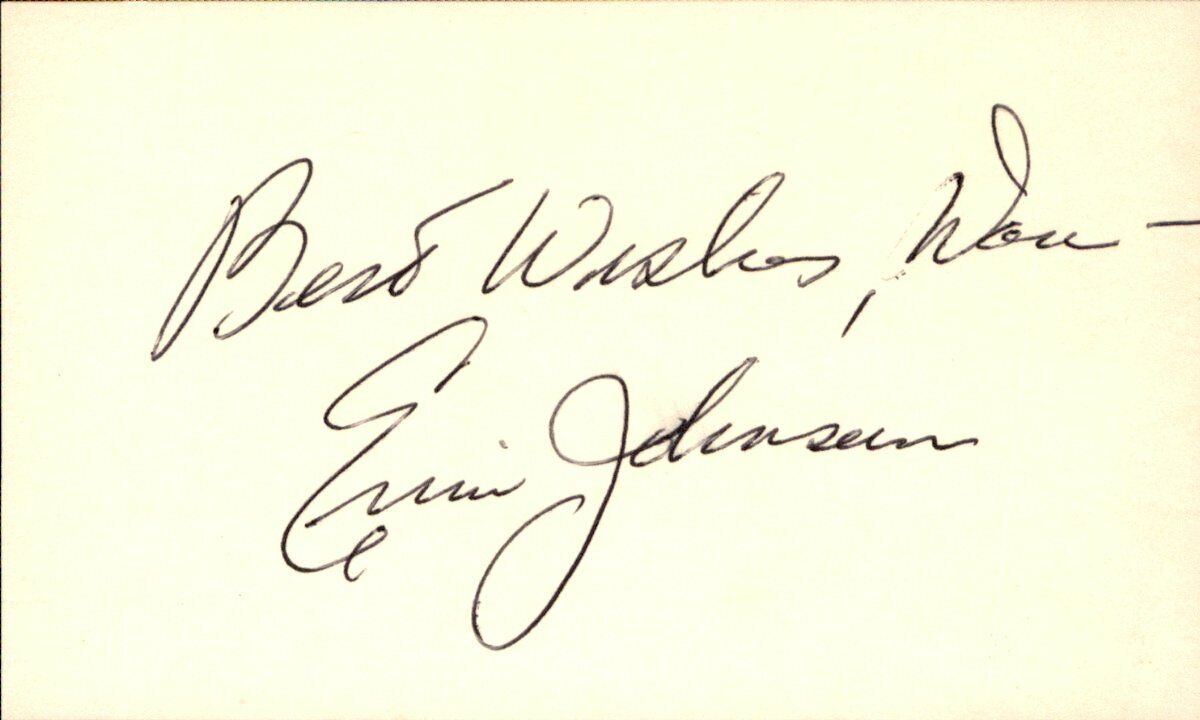 Best Wishes, Don —
Ernie Johnson